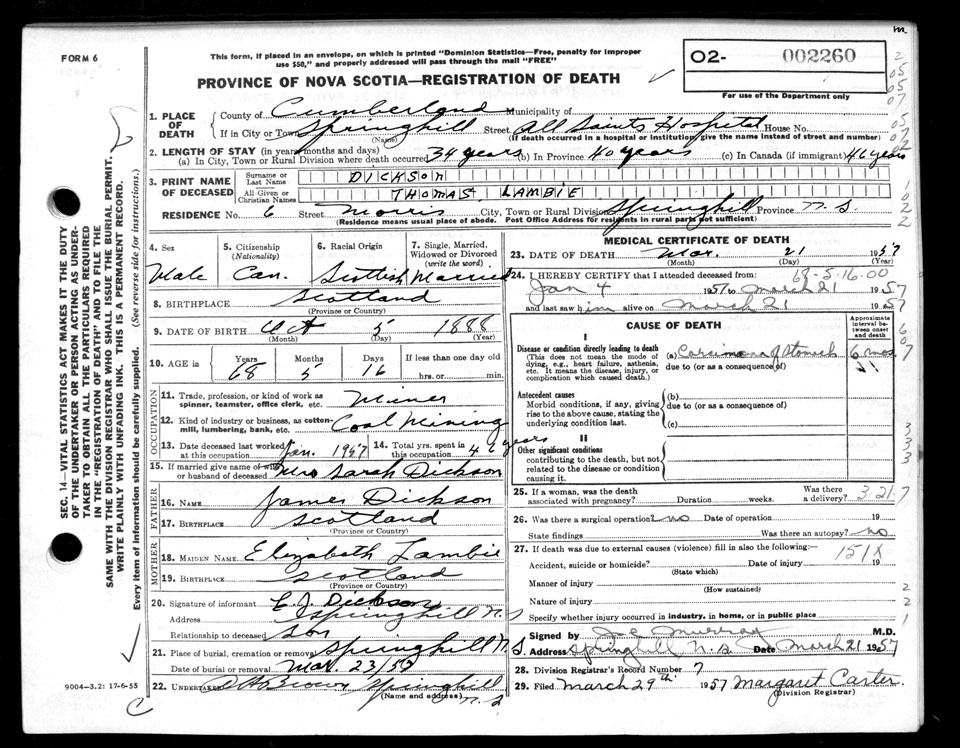 FORM 6
This form, if placed in an envelope, on which is printed "Dominion Statistics—Free, penalty for improper
use $50," and properly addressed will pass through the mail "FREE"
PROVINCE OF NOVA SCOTIA—REGISTRATION OF DEATH
O2- 002260
For use of the Department only
1. PLACE OF DEATH
County of Cumberland Municipality of
If in City or Town Springhill Street All Saints Hospital House No.
(Name) (If death occurred in a hospital or institution, give the name instead of street and number)
2. LENGTH OF STAY (in years, months and days)
(a) In City, Town or Rural Division where death occurred 34 years (b) In Province 40 years (c) In Canada (if immigrant) 46 years
3. PRINT NAME OF DECEASED
Surname or Last Name DICKSON
All Given or Christian Names THOMAS LAMBIE
RESIDENCE No. 6 Street Morris City, Town or Rural Division Springhill Province N.S.
(Residence means usual place of abode. Post Office Address for residents in rural parts not sufficient)
4. Sex
Male
5. Citizenship (Nationality)
Can.
6. Racial Origin
Scottish
7. Single, Married, Widowed or Divorced (write the word)
Married
8. BIRTHPLACE Scotland
(Province or Country)
9. DATE OF BIRTH Oct 5 1888
(Month) (Day) (Year)
10. AGE in Years Months Days If less than one day old
68 5 16 hrs. or min.
OCCUPATION
11. Trade, profession, or kind of work as spinner, teamster, office clerk, etc. Miner
12. Kind of industry or business, as cotton-mill, lumbering, bank, etc. Coal Mining
13. Date deceased last worked at this occupation Jan. 1947
14. Total yrs. spent in this occupation 46 years
15. If married give name of wife or husband of deceased Mrs Sarah Dickson
FATHER
16. NAME James Dickson
17. BIRTHPLACE Scotland
(Province or Country)
MOTHER
18. MAIDEN NAME Elizabeth Lambie
19. BIRTHPLACE Scotland
(Province or Country)
20. Signature of informant E. J. Dickson
Address Springhill N.S
Relationship to deceased Son
21. Place of burial, cremation or removal Springhill N.S.
Date of burial or removal Mar. 23/57
22. UNDERTAKER Brown Springhill N.S
(Name and address)
MEDICAL CERTIFICATE OF DEATH
23. DATE OF DEATH Mar. 21 1957
(Month) (Day) (Year)
68-5-16-00
24. I HEREBY CERTIFY that I attended deceased from:
Jan 4 1957 to March 21 1957
and last saw him alive on March 21 1957
CAUSE OF DEATH
Approximate interval between onset and death
I
Disease or condition directly leading to death
(This does not mean the mode of dying, e.g., heart failure, asthenia, etc. It means the disease, injury, or complication which caused death.)
(a) Carcinoma of Stomach 6 mos
due to (or as a consequence of)
Antecedent causes
Morbid conditions, if any, giving rise to the above cause, stating the underlying condition last.
(b)
due to (or as a consequence of)
(c)
II
Other significant conditions
contributing to the death, but not related to the disease or condition causing it.
25. If a woman, was the death associated with pregnancy? Duration weeks. Was there a delivery?
3 21 7
26. Was there a surgical operation? no Date of operation 19
State findings Was there an autopsy? no
27. If death was due to external causes (violence) fill in also the following:—
151X
Accident, suicide or homicide? Date of injury 19
(State which)
Manner of injury
(How sustained)
Nature of injury
Specify whether injury occurred in industry, in home, or in public place
Signed by J. C. Murray M.D.
Address Springhill N.S. Date March 21 1957
28. Division Registrar's Record Number 7
29. Filed March 29th 1957 Margaret Carter.
(Division Registrar)
SEC. 14—VITAL STATISTICS ACT MAKES IT THE DUTY
OF THE UNDERTAKER OR PERSON ACTING AS UNDER-
TAKER TO OBTAIN ALL THE PARTICULARS REQUIRED
IN THE "REGISTRATION OF DEATH" AND TO FILE THE
SAME WITH THE DIVISION REGISTRAR WHO SHALL ISSUE THE BURIAL PERMIT.
WRITE PLAINLY WITH UNFADING INK. THIS IS A PERMANENT RECORD.
Every item of information should be carefully supplied. (See reverse side for instructions.)
9004—3.2: 17-6-55